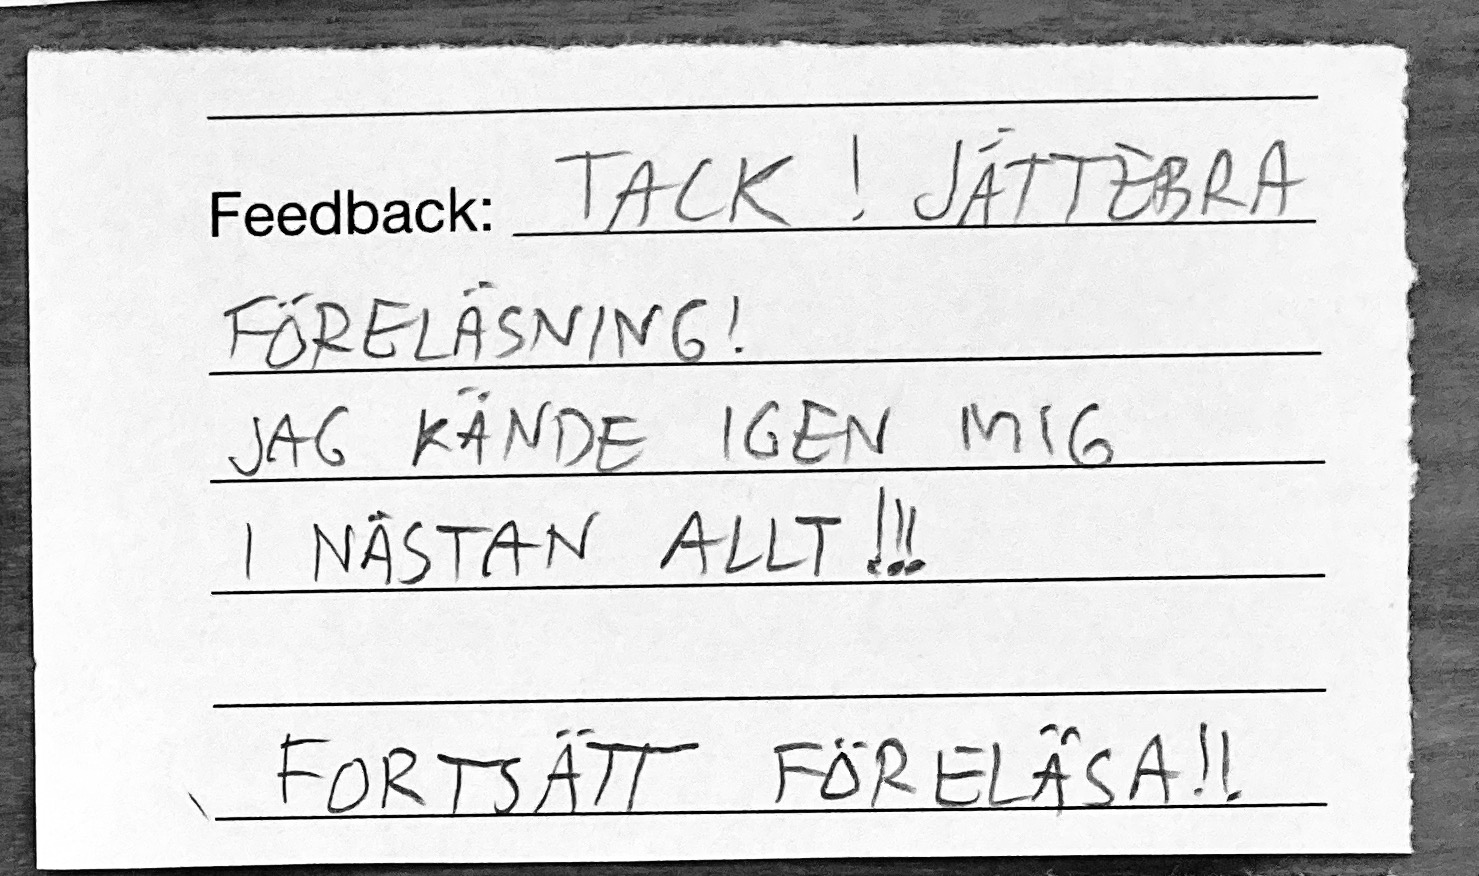 Feedback: TACK! JÄTTEBRA
FÖRELÄSNING!
JAG KÄNDE IGEN MIG
I NÄSTAN ALLT!!!
FORTSÄTT FÖRELÄSA!!